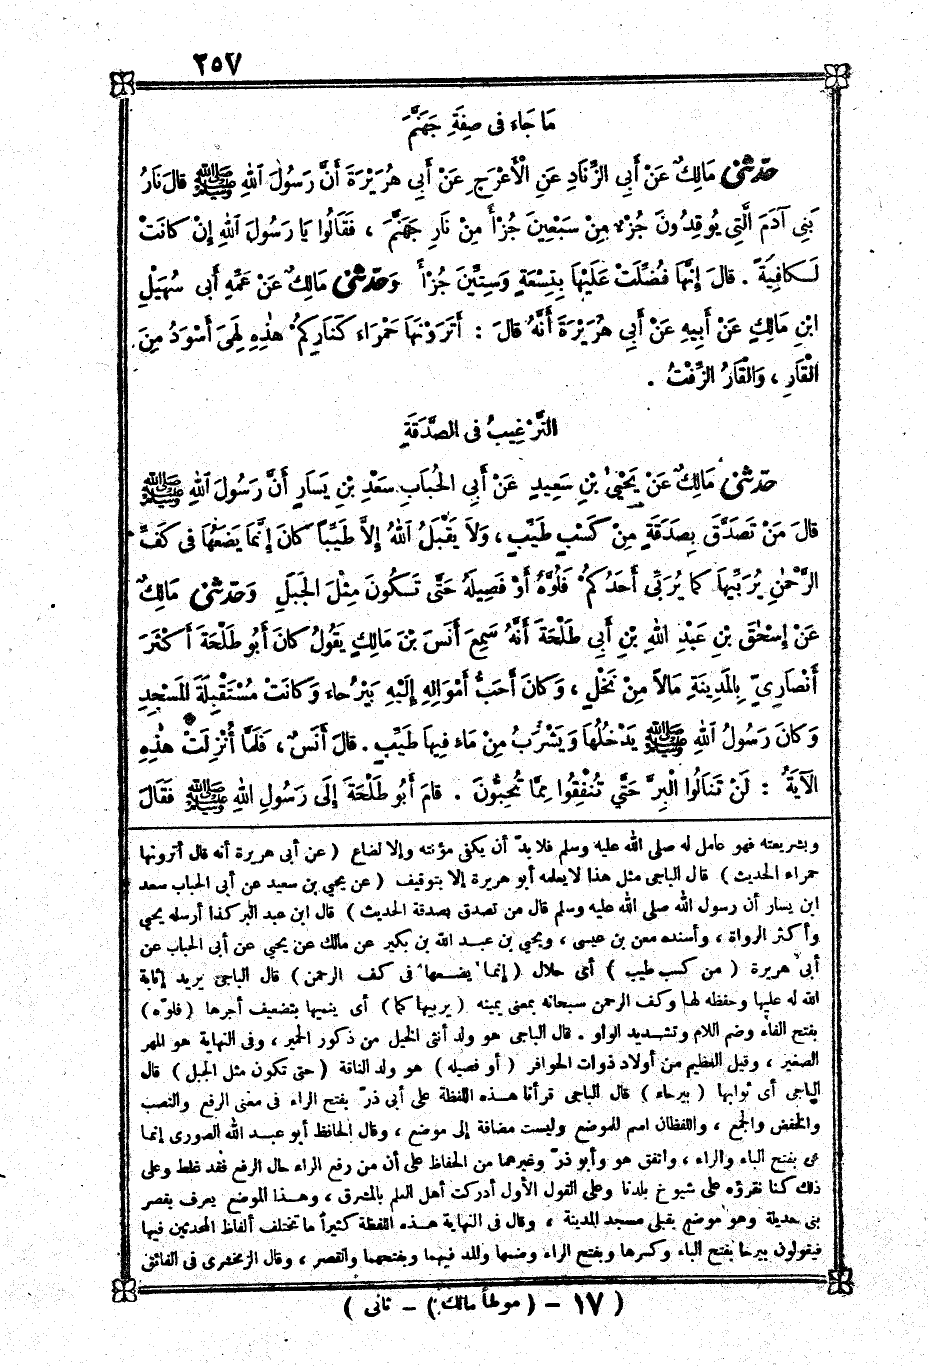 ٢٥٧
مَا جَاءَ فى صِفَةِ جَهَنَّمَ
حَدَّثَنِى مَالِكٌ عَنْ أَبِى الزِّنَادِ عَنِ الْأَعْرَجِ عَنْ أَبِى هُرَيْرَةَ أَنَّ رَسُولَ اللهِ ﷺ قالَ نَارُ
بَنِى آدَمَ الَّتِى يُوقِدُونَ جُزْءٌ مِنْ سَبْعِينَ جُزْأً مِنْ نَارِ جَهَنَّمَ ، فَقَالُوا يَا رَسُولَ اللهِ إِنْ كَانَتْ
لَكافِيَةً . قالَ إِنَّهَا فُضِّلَتْ عَلَيْهَا بِتِسْعَةٍ وَسِتِّينَ جُزْأً وَحَدَّثَنِى مَالِكٌ عَنْ عَمِّهِ أَبى سُهَيْلِ
ابْنِ مَالِكٍ عَنْ أَبِيهِ عَنْ أَبِى هُرَيْرَةَ أَنَّهُ قالَ : أَتَرَوْنَهَا حَمْرَاء كَنَارِكُمْ هٰذِهِ لَهِىَ أَسْوَدُ مِنَ
الْقَارِ ، وَالْقَارُ الزِّفْتُ .
التَّرْغِيبُ فى الصَّدَقَةِ
حَدَّثَنِى مَالِكٌ عَنْ يَحْيٰى بْنِ سَعِيدٍ عَنْ أَبِى الْحُبَابِ سَعْدِ بْنِ يَسَارٍ أَنَّ رَسُولَ اللهِ ﷺ
قالَ مَنْ تَصَدَّقَ بِصَدَقَةٍ مِنْ كَسْبٍ طَيِّبٍ ، وَلاَ يَقْبَلُ اللهُ إِلاَّ طَيِّبًا كانَ إِنَّمَا يَضَعُهَا فى كَفِّ
الرَّحْمٰنِ يُرَبِّيهَا كما يُرَبِّى أَحَدُكُمْ فَلُوَّهُ أَوْ فَصِيلَهُ حَتَّى تَكُونَ مِثْلَ الْجَبَلِ وَحَدَّثَنِى مَالِكٌ
عَنْ إِسْحٰقَ بْنِ عَبْدِ اللهِ بْنِ أَبِى طَلْحَةَ أَنَّهُ سَمِعَ أَنَسَ بْنَ مَالِكٍ يَقُولُ كانَ أَبُو طَلْحَةَ أَكْثَرَ
أَنْصَارِىٍّ بِالْمَدِينَةِ مَالاً مِنْ نَخْلٍ ، وَكانَ أَحَبُّ أَمْوَالِهِ إِلَيْهِ بَيْرُحاء وَكانَتْ مُسْتَقْبِلَةَ الْمَسْجِدِ
وَكانَ رَسُولُ اللهِ ﷺ يَدْخُلُهَا وَيَشْرَبُ مِنْ مَاء فِيهَا طَيِّبٍ . قالَ أَنَسٌ ، فَلَمَّا أُنْزِلَتْ هٰذِهِ
الآيَةُ : لَنْ تَنَالُوا الْبِرَّ حَتَّى تُنْفِقُوا مِمَّا تُحِبُّونَ . قامَ أَبُو طَلْحَةَ إِلَى رَسُولِ اللهِ ﷺ فَقَالَ
وبشريعته فهو عامل له صلى الله عليه وسلم فلا بدّ أن يكفى مؤنته وإلا لضاع ( عن أبى هريرة أنه قال أترونها
حمراء الحديث ) قال الباجى مثل هذا لا يعلمه أبو هريرة إلا بتوقيف ( عن يحيى بن سعيد عن أبى الحباب سعد
ابن يسار أن رسول الله صلى الله عليه وسلم قال من تصدق بصدقة الحديث ) قال ابن عبد البر كذا أرسله يحيى
وأكثر الرواة ، وأسنده معن بن عيسى ، ويحيى بن عبد الله بن بكير عن مالك عن يحيى عن أبى الحباب عن
أبى هريرة ( من كسب طيب ) أى حلال ( إنما يضعها فى كف الرحمن ) قال الباجى يريد إثابة
الله له عليها وحفظه لها وكف الرحمن سبحانه بمعنى يمينه ( يربيها كما ) أى ينميها بتضعيف أجرها ( فلوّه )
بفتح الفاء وضم اللام وتشديد الواو . قال الباجى هو ولد أنثى الخيل من ذكور الحمير ، وفى النهاية هو المهر
الصغير ، وقيل الفطيم من أولاد ذوات الحوافر ( أو فصيله ) هو ولد الناقة ( حتى تكون مثل الجبل ) قال
الباجى أى ثوابها ( بيرحاء ) قال الباجى قرأنا هذه اللفظة على أبى ذرّ بفتح الراء فى معنى الرفع والنصب
والخفض والجمع ، واللفظان اسم للموضع وليست مضافة إلى موضع ، وقال الحافظ أبو عبد الله الصورى إنما
هى بفتح الباء والراء ، واتفق هو وأبو ذرّ وغيرهما من الحفاظ على أن من رفع الراء حال الرفع فقد غلط وعلى
ذلك كنا نقرؤه على شيوخ بلدنا وعلى القول الأول أدركت أهل العلم بالمشرق ، وهذا الموضع يعرف بقصر
بنى حديلة وهو موضع بقبلى مسجد المدينة ، وقال فى النهاية هذه اللفظة كثيراً ما تختلف ألفاظ المحدثين فيها
فيقولون بيرحا بفتح الباء وكسرها وبفتح الراء وضمها والمد فيهما وبفتحهما والقصر ، وقال الزمخشرى فى الفائق
( ١٧ - ( موطأ مالك ) - ثانى )